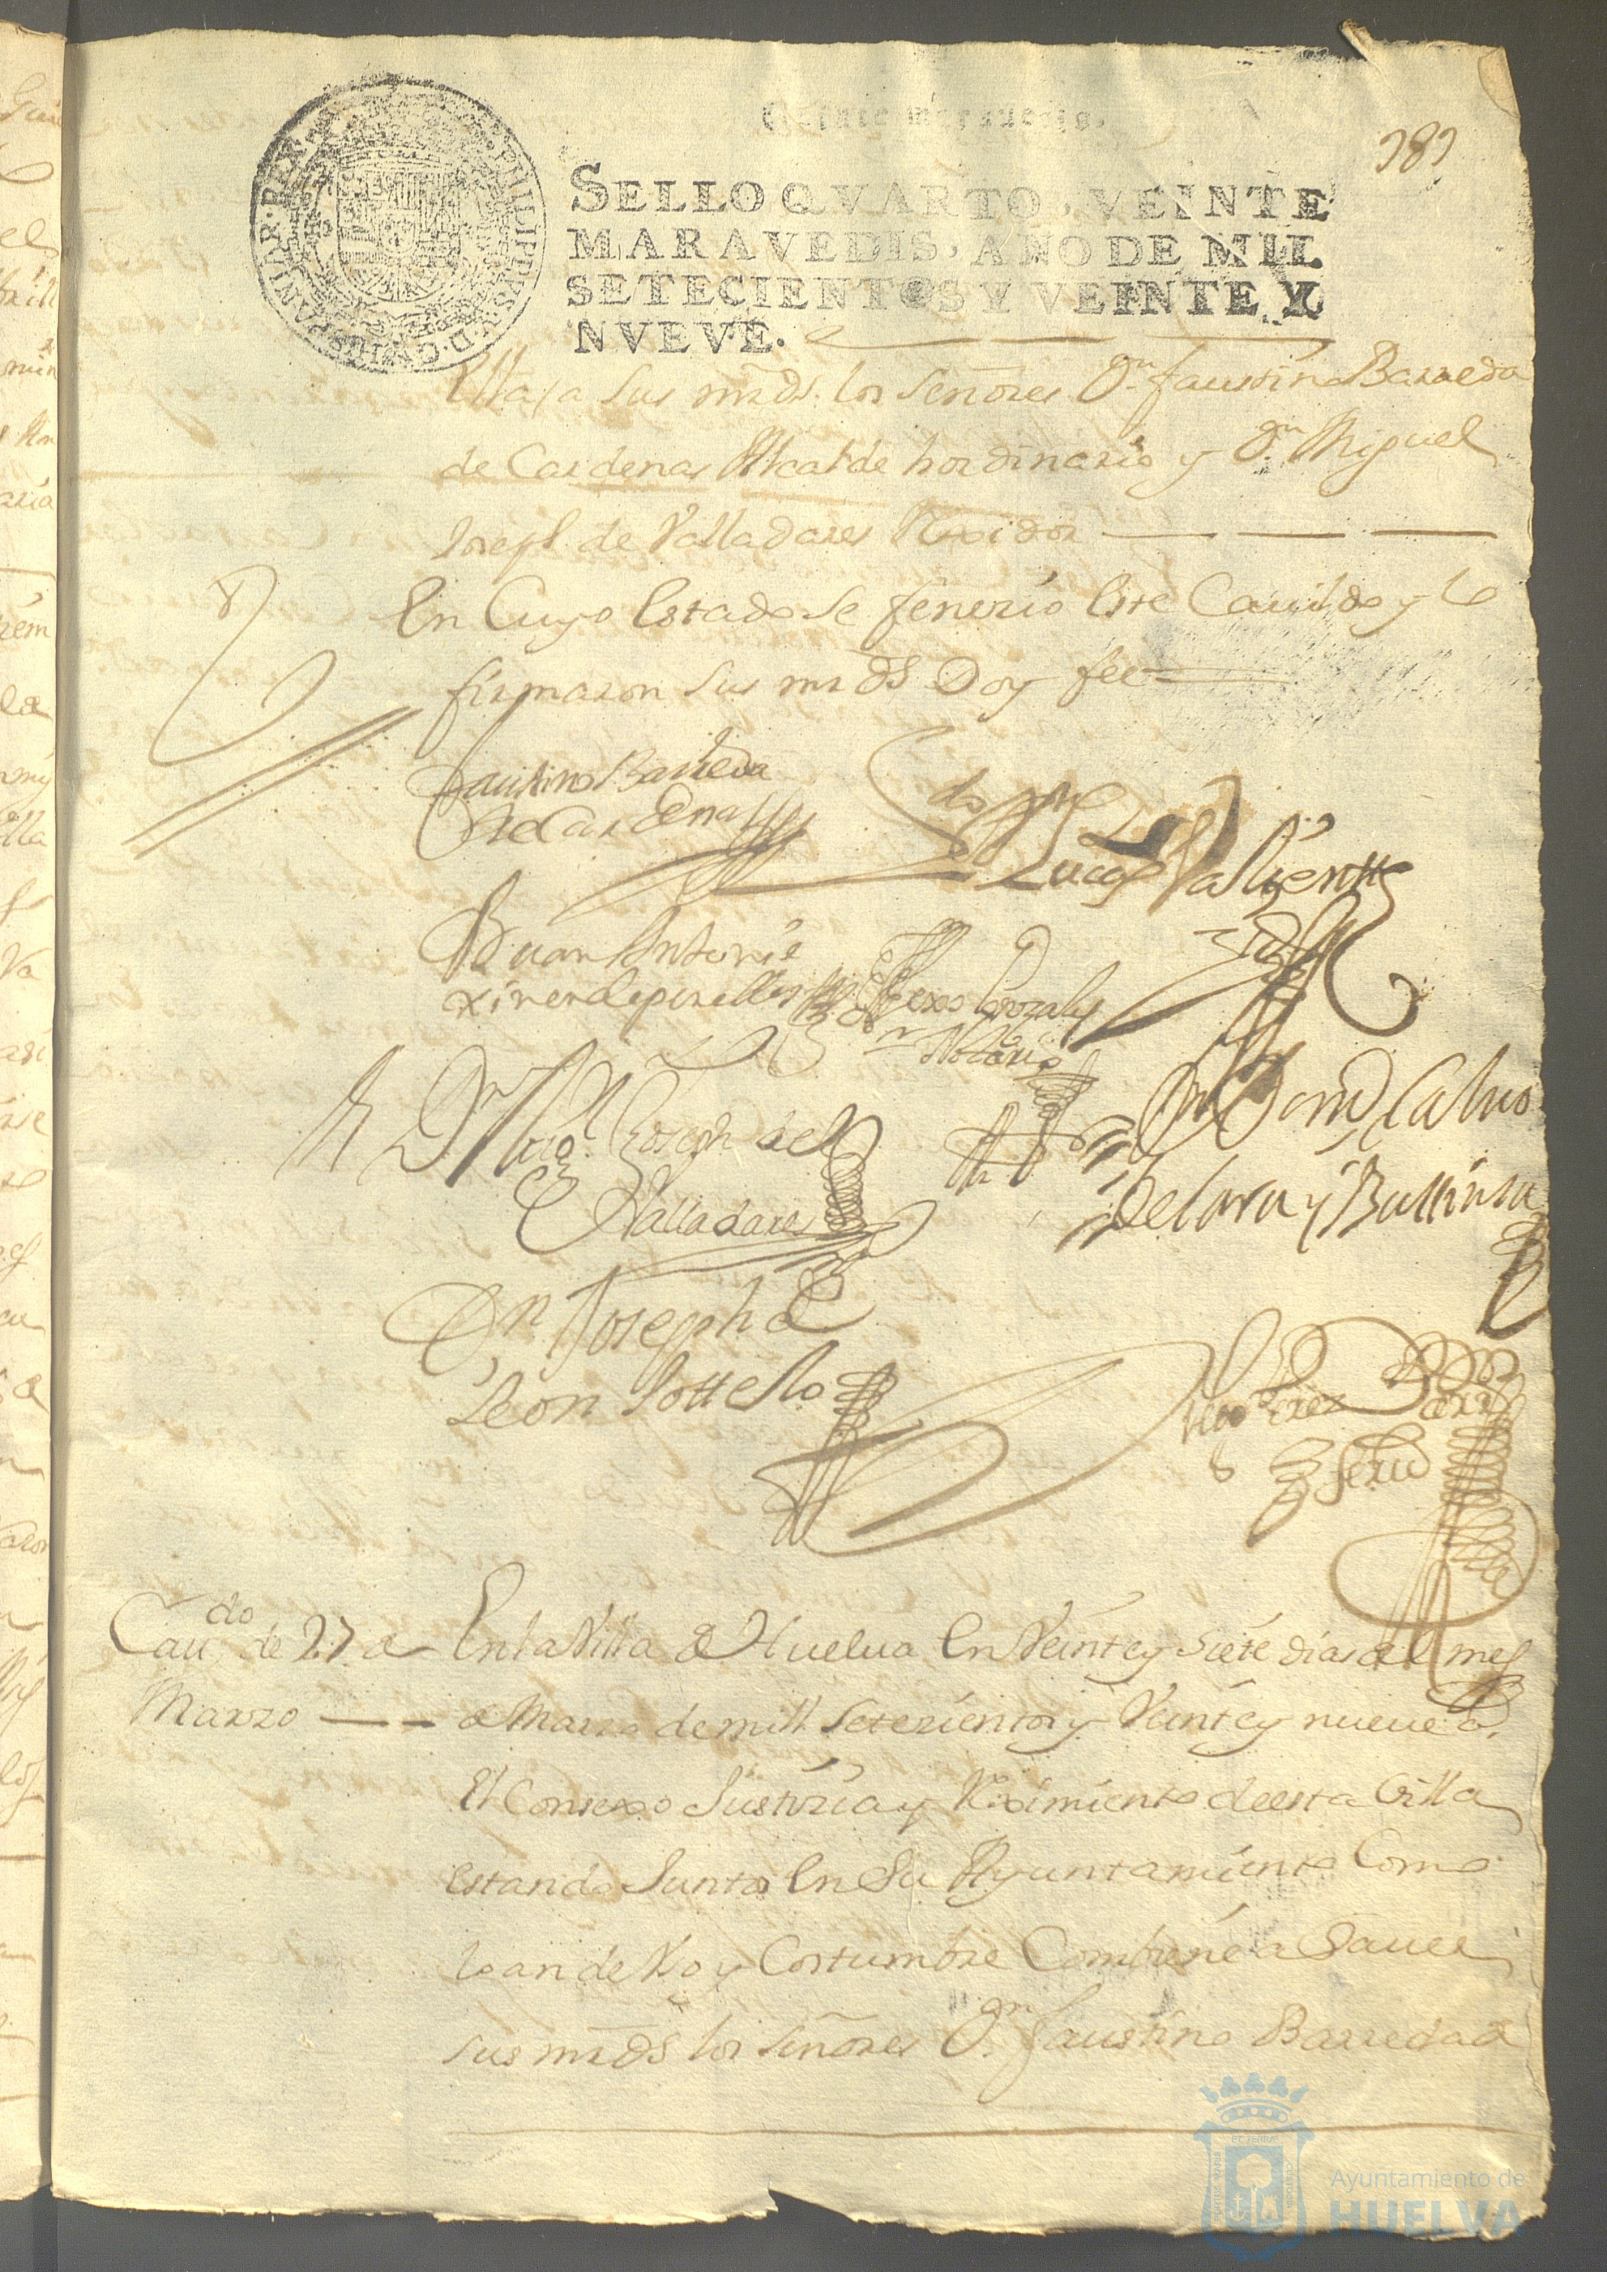 Veinte marauedis.
383
SELLO QVARTO, VEINTE
MARAVEDIS, AÑO DE MIL
SETECIENTOS Y VEINTE Y
NVEVE.
PHILIPPVS V D G HISPANIAR REX
a sus mrds. los señores Dn. faustino Barreda
de Cardenas Alcalde hordinario y Dn. Miguel
Joseph de Valladares Rexidor
En Cuyo Estado se feneçio Este Cauildo y lo
firmaron sus mrds Doy fee
faustino Barreda
de Cardenas
Lucas Valiente
Juan Antonio
Gonzales
Notario
Dn Migl Joseph de
Valladares
Dn Domo Calvo
de lara y Buttinsa
Dn Joseph de
Leon Sottello
Diego Perez
Caudo de 27 de
Marzo
En la Villa de Huelua En Veinte y Siete dias del mes
de Marzo de mill seteçientos y Veinte y nueue as
El Consexo Justiçia y Reximiento de esta Villa
Estando Junto En Su Ayuntamiento Como
lo an de Vso y Costumbre Combiene a Sauer
sus mrds los señores Dn. faustino Barreda de
Ayuntamiento de
HUELVA